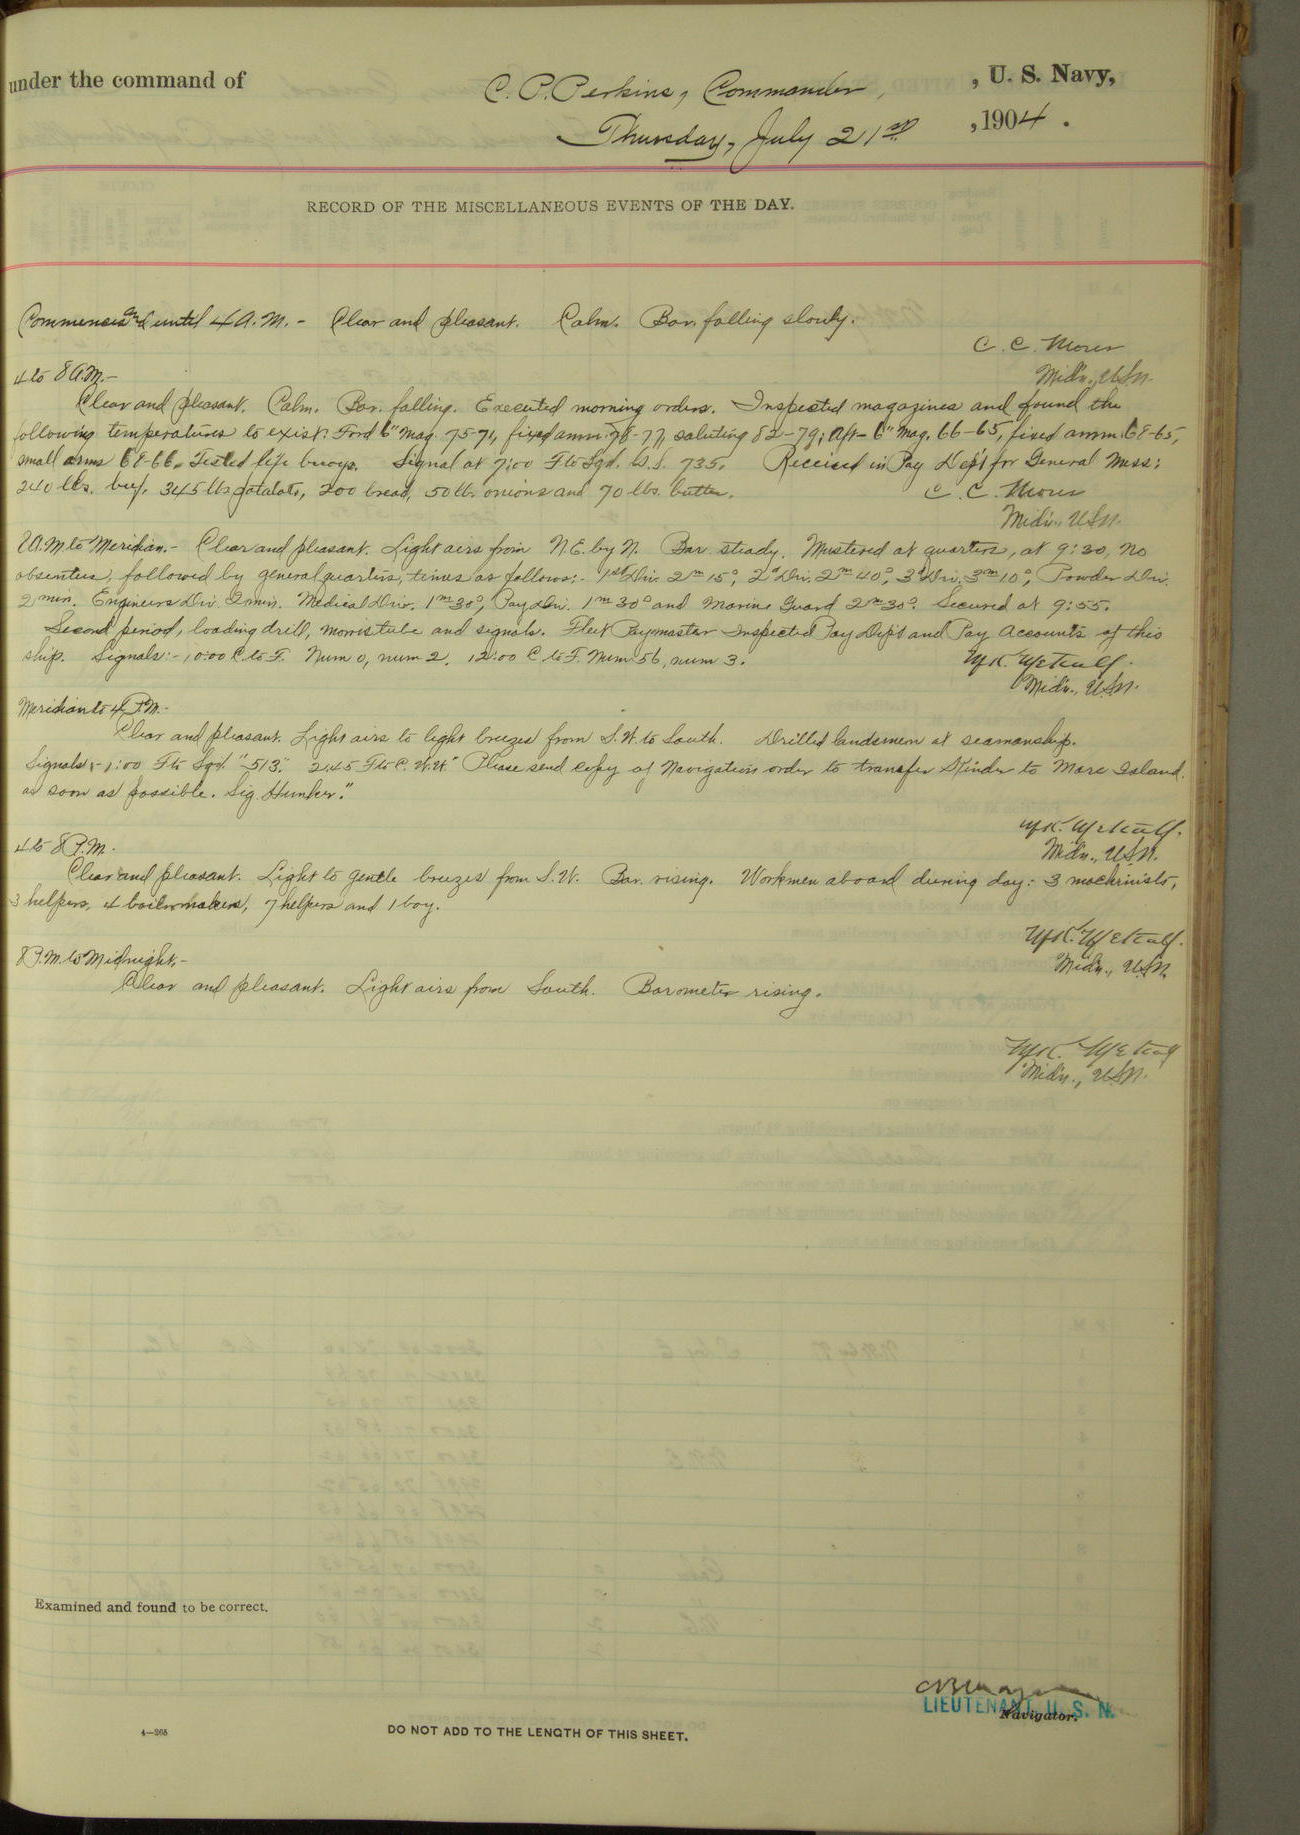 under the command of C. P. Perkins, Commander, U. S. Navy,
Thursday, July 21st, 1904.
RECORD OF THE MISCELLANEOUS EVENTS OF THE DAY.
Commences and until 4 A.M. - Clear and pleasant. Calm. Bar. falling slowly.
C. C. Moses
Mid'n., U.S.N.
4 to 8 A.M. -
Clear and pleasant. Calm. Bar. falling. Executed morning orders. Inspected magazines and found the
following temperatures to exist: Ford 6" Mag. 75-71, fixed amm. 78-77, saluting 82-79; Aft- 6" Mag. 66-65, fixed amm. 68-65,
small arms 68-66. Tested life buoys. Signal at 7:00 F to Sqd. W.S. 735. Received in Pay Dep't for General Mess:
240 lbs. beef, 345 lbs potatoes, 200 bread, 50 lb. onions and 70 lbs. butter.
C. C. Moses
Mid'n., U.S.N.
8 A.M. to Meridian. - Clear and pleasant. Light airs from N.E. by N. Bar. steady. Mustered at quarters, at 9:30, no
absentees, followed by general quarters, times as follows:- 1st Div. 2m 15s, 2d Div. 2m 40s, 3d Div. 3m 10s, Powder Div.
2 min. Engineers Div. 2 min. Medical Div. 1m 30s, Pay Div. 1m 30s and Marine Guard 2m 30s. Secured at 9:55.
Second period, loading drill, morris tube and signals. Fleet Paymaster Inspected Pay Dep't and Pay Accounts of this
ship. Signals:- 10:00 C. to F. Num 0, num 2. 12:00 C to F. Num 56, num 3.
M.K. Metcalf.
Mid'n., U.S.N.
Meridian to 4 P.M. -
Clear and pleasant. Light airs to light breezes from S.W. to South. Drilled landsmen at seamanship.
Signals:- 1:00 F to Sqd. "513." 2:45 F to C. W.W. "Please send copy of Navigation order to transfer to Mare Island
as soon as possible. Sig. Hunker."
M.K. Metcalf.
Mid'n., U.S.N.
4 to 8 P.M. -
Clear and pleasant. Light to gentle breezes from S.W. Bar. rising. Workmen aboard during day: 3 machinists,
3 helpers, 4 boilermakers, 7 helpers and 1 boy.
M.K. Metcalf.
Mid'n., U.S.N.
8 P.M. to Midnight. -
Clear and pleasant. Light airs from South. Barometer rising.
M.K. Metcalf
Mid'n., U.S.N.
Examined and found to be correct.
LIEUTENANT, U. S. N.
Navigator.
4-265
DO NOT ADD TO THE LENGTH OF THIS SHEET.